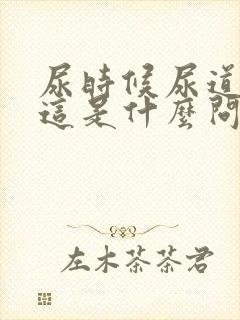 尿時候尿道
這是什麼問
左木茶茶君